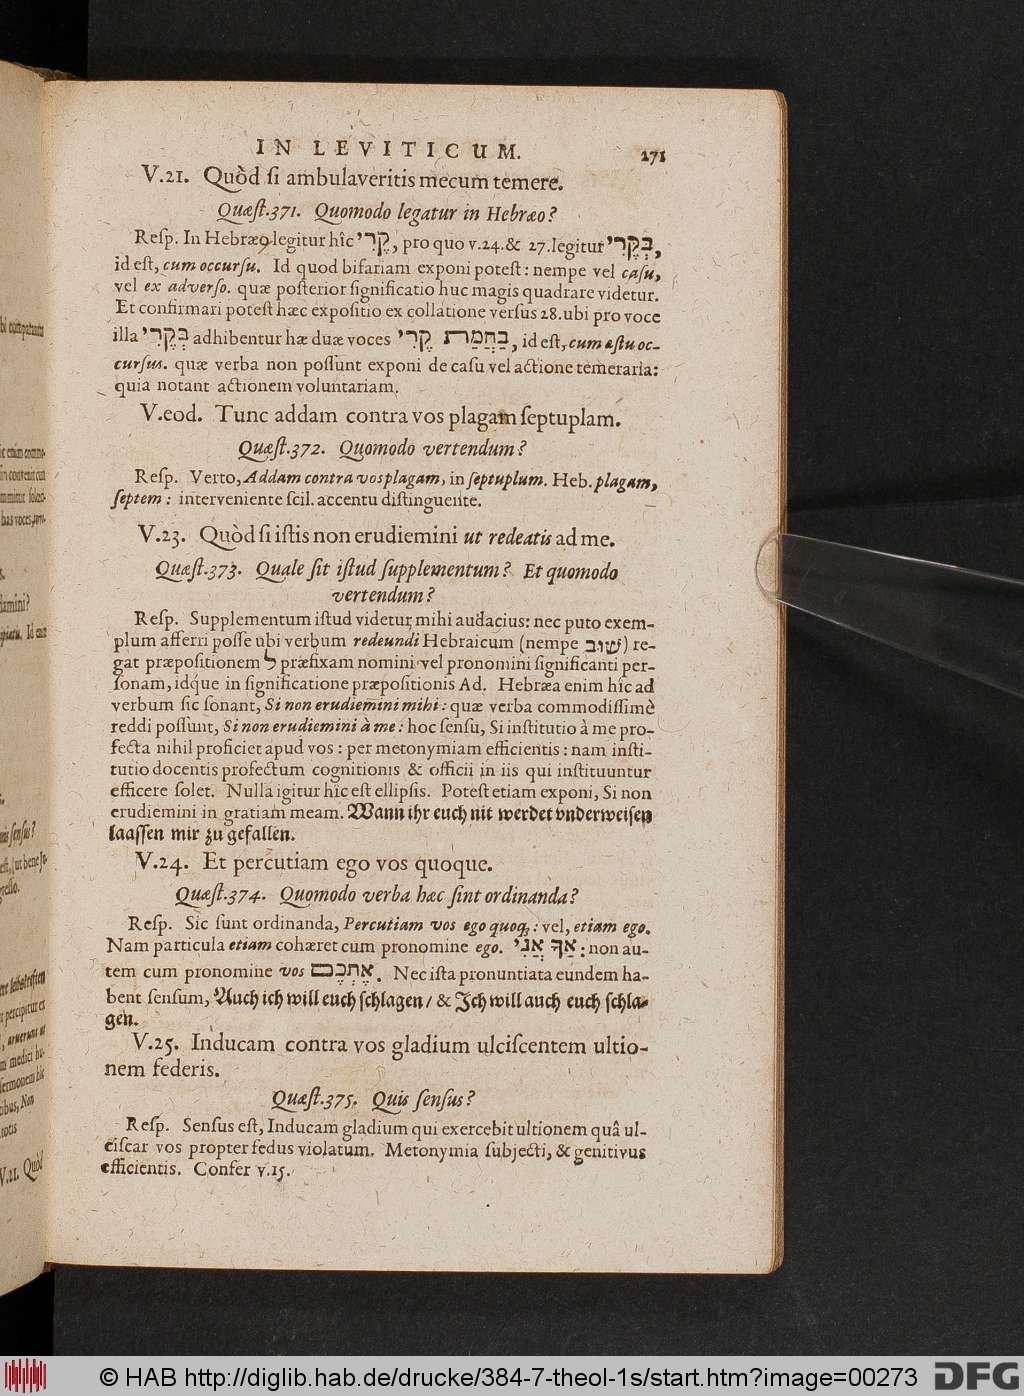 IN LEVITICUM. 271
V.21. Quòd ſi ambulaveritis mecum temere.
Quæſt.371. Quomodo legatur in Hebræo?
Reſp. In Hebræo legitur hîc קֶרִי, pro quo v.24.& 27.legitur בְּקֶרִי,
id eſt, cum occurſu. Id quod bifariam exponi poteſt: nempe vel caſu,
vel ex adverſo. quæ poſterior ſignificatio huc magis quadrare videtur.
Et confirmari poteſt hæc expoſitio ex collatione verſus 28. ubi pro voce
illa בְּקֶרִי adhibentur hæ duæ voces בַּחֲמַת קֶרִי, id eſt, cum æſtu oc-
curſus. quæ verba non poſſunt exponi de caſu vel actione temeraria:
quia notant actionem voluntariam.
V.eod. Tunc addam contra vos plagam ſeptuplam.
Quæſt.372. Quomodo vertendum?
Reſp. Verto, Addam contra vos plagam, in ſeptuplum. Heb. plagam,
ſeptem: interveniente ſcil. accentu diſtinguente.
V.23. Quòd ſi iſtis non erudiemini ut redeatis ad me.
Quæſt.373. Quale ſit iſtud ſupplementum? Et quomodo
vertendum?
Reſp. Supplementum iſtud videtur mihi audacius: nec puto exem-
plum afferri poſſe ubi verbum redeundi Hebraicum (nempe שׁוּב) re-
gat præpoſitionem ל præfixam nomini vel pronomini ſignificanti per-
ſonam, idque in ſignificatione præpoſitionis Ad. Hebræa enim hîc ad
verbum ſic ſonant, Si non erudiemini mihi: quæ verba commodiſſimè
reddi poſſunt, Si non erudiemini à me: hoc ſenſu, Si inſtitutio à me pro-
fecta nihil proficiet apud vos: per metonymiam efficientis: nam inſti-
tutio docentis profectum cognitionis & officii in iis qui inſtituuntur
efficere ſolet. Nulla igitur hîc eſt ellipſis. Poteſt etiam exponi, Si non
erudiemini in gratiam meam. Wann ihr euch nit werdet vnderweiſen
laaſſen mir zu gefallen.
V.24. Et percutiam ego vos quoque.
Quæſt.374. Quomodo verba hæc ſint ordinanda?
Reſp. Sic ſunt ordinanda, Percutiam vos ego quoq;: vel, etiam ego.
Nam particula etiam cohæret cum pronomine ego. אַף אֲנִי: non au-
tem cum pronomine vos אֶתְכֶם. Nec iſta pronuntiata eundem ha-
bent ſenſum, Auch ich will euch ſchlagen/ & Ich will auch euch ſchla-
gen.
V.25. Inducam contra vos gladium ulciſcentem ultio-
nem federis.
Quæſt.375. Quis ſenſus?
Reſp. Senſus eſt, Inducam gladium qui exercebit ultionem quâ ul-
ciſcar vos propter fedus violatum. Metonymia ſubjecti, & genitivus
efficientis. Confer v.15.
© HAB http://diglib.hab.de/drucke/384-7-theol-1s/start.htm?image=00273 DFG